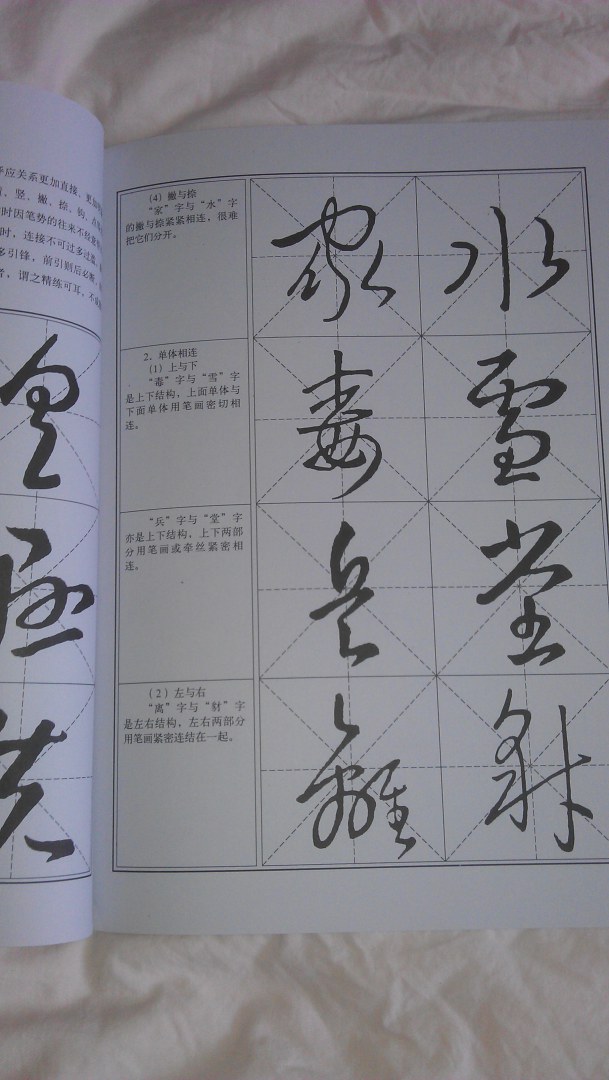 应关系更加直接，更加
竖、撇、捺、钩、点
时因笔势的往来不经意
时，连接不可过多过
多引锋，前引则后必断，
者，谓之精练可耳，不
（4）撇与捺
“家”字与“水”字
的撇与捺紧紧相连，很难
把它们分开。
家 水
2．单体相连
（1）上与下
“毒”字与“雪”字
是上下结构，上面单体与
下面单体用笔画密切相
连。
毒 雪
“兵”字与“堂”字
亦是上下结构，上下两部
分用笔画或牵丝紧密相
连。
兵 堂
（2）左与右
“离”字与“豺”字
是左右结构，左右两部分
用笔画紧密连结在一起。
離 豺